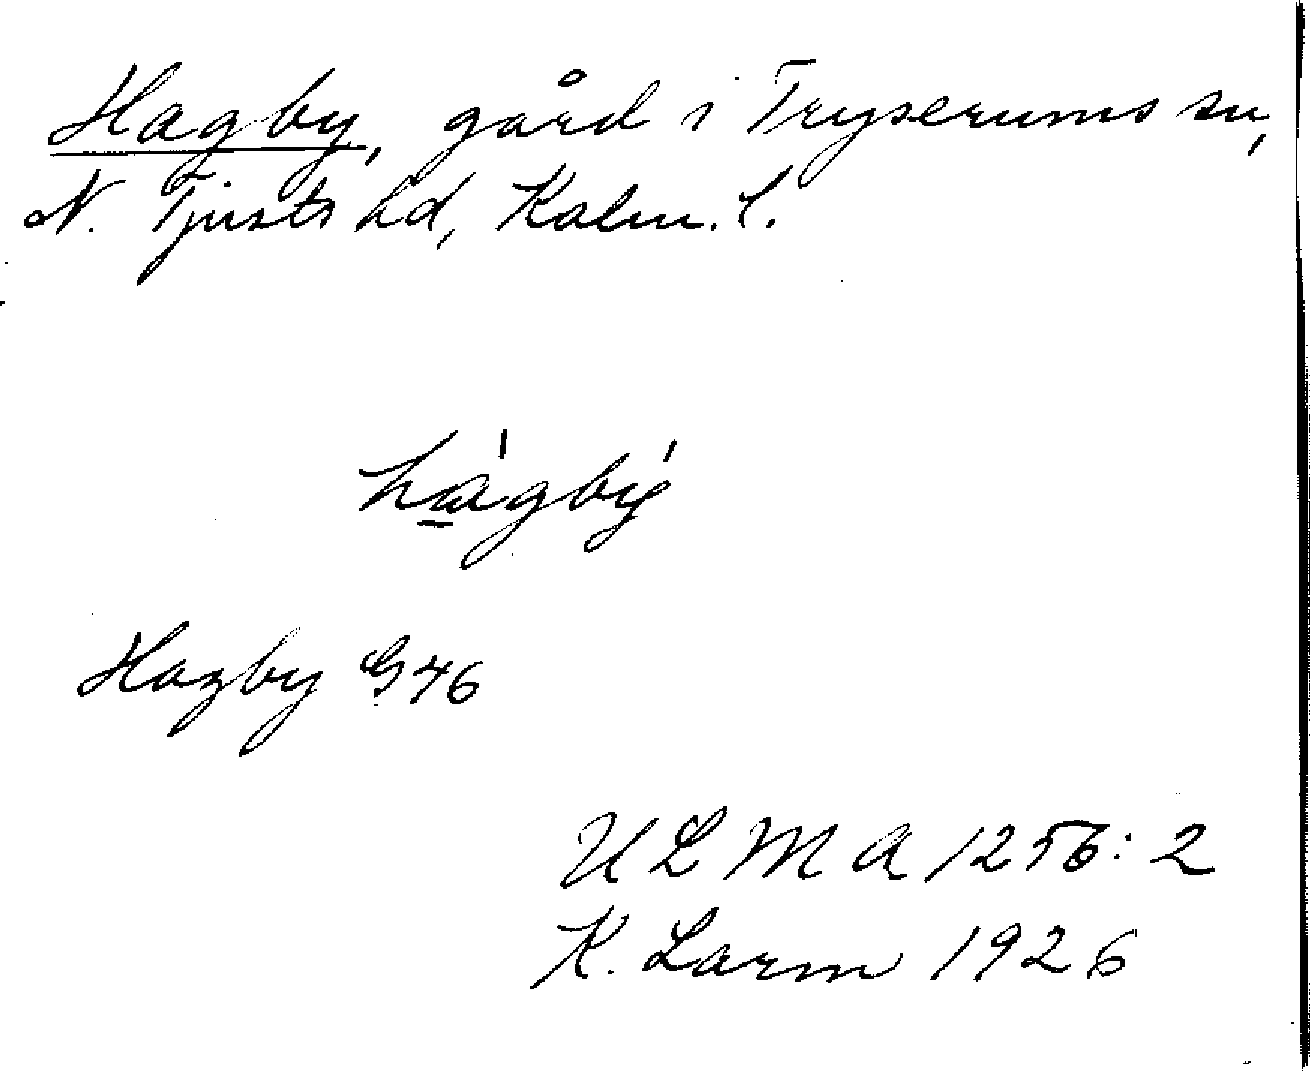 Hagby, gård i Tryserums sn,
N. Tjusts hd, Kalm. l.
ha̲'gby'
Hagby G46
ULMA 1256:2
K. Larm 1926